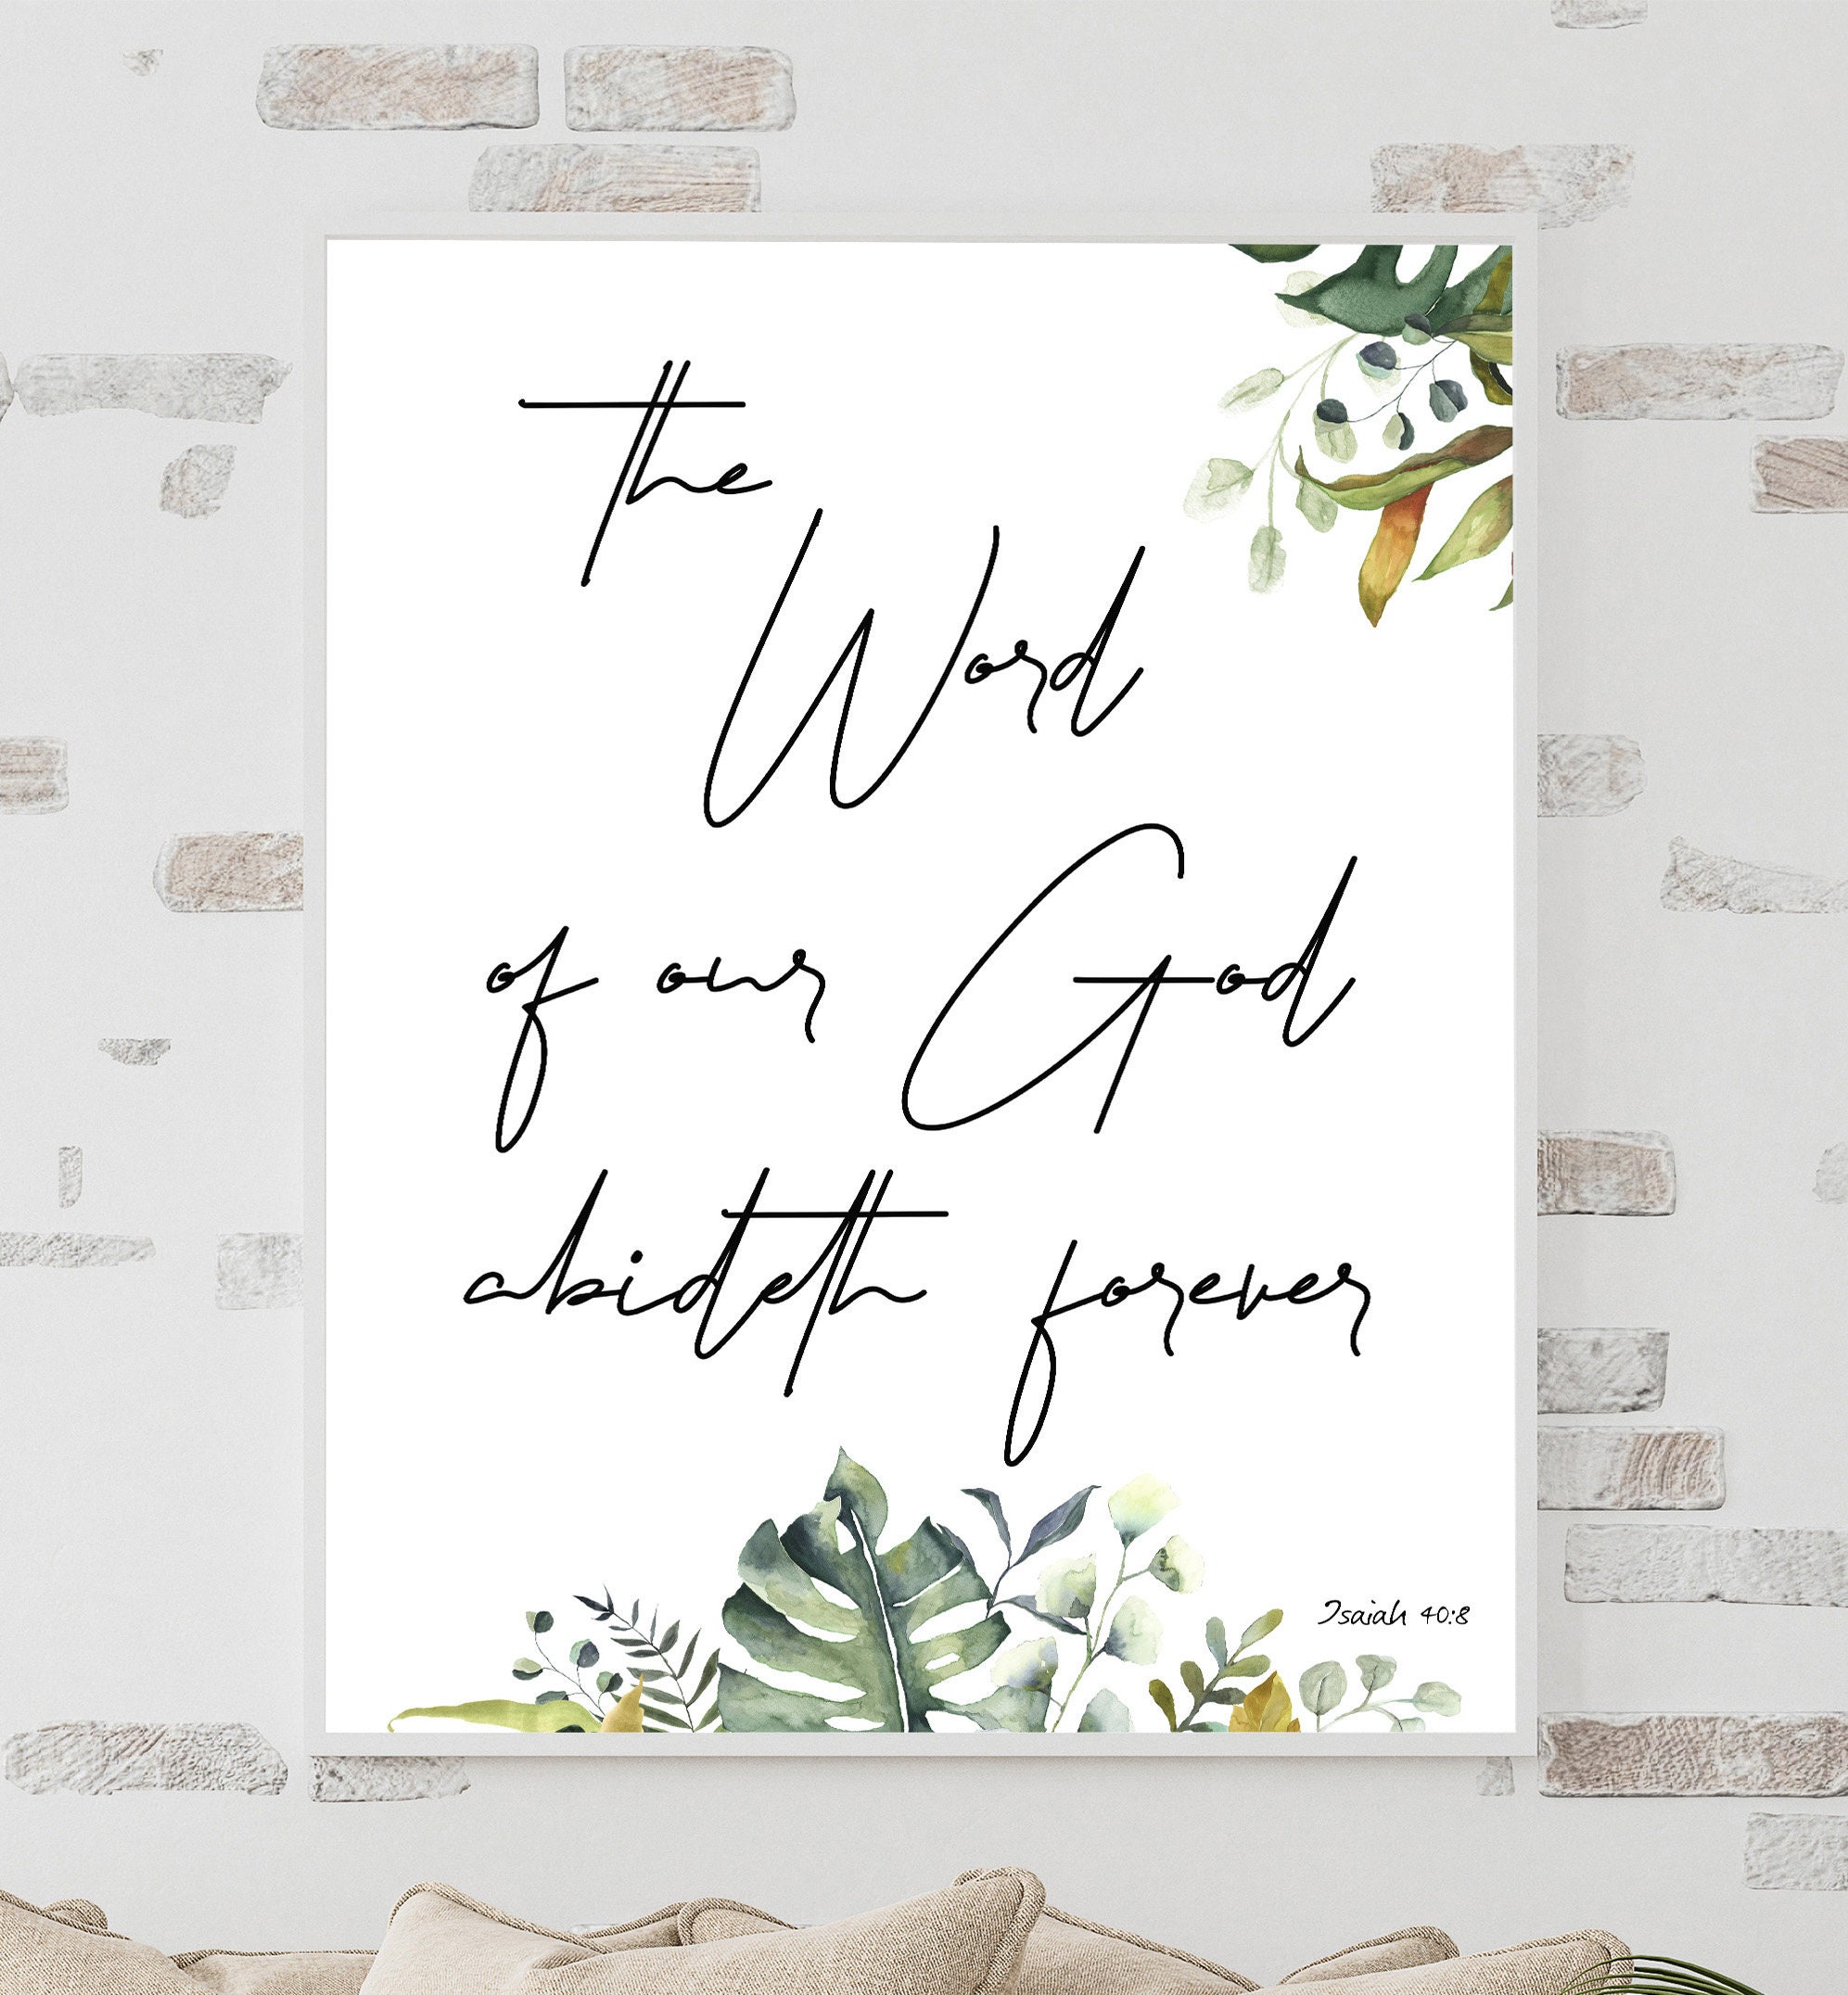 the
Word
of our God
abideth forever
Isaiah 40:8